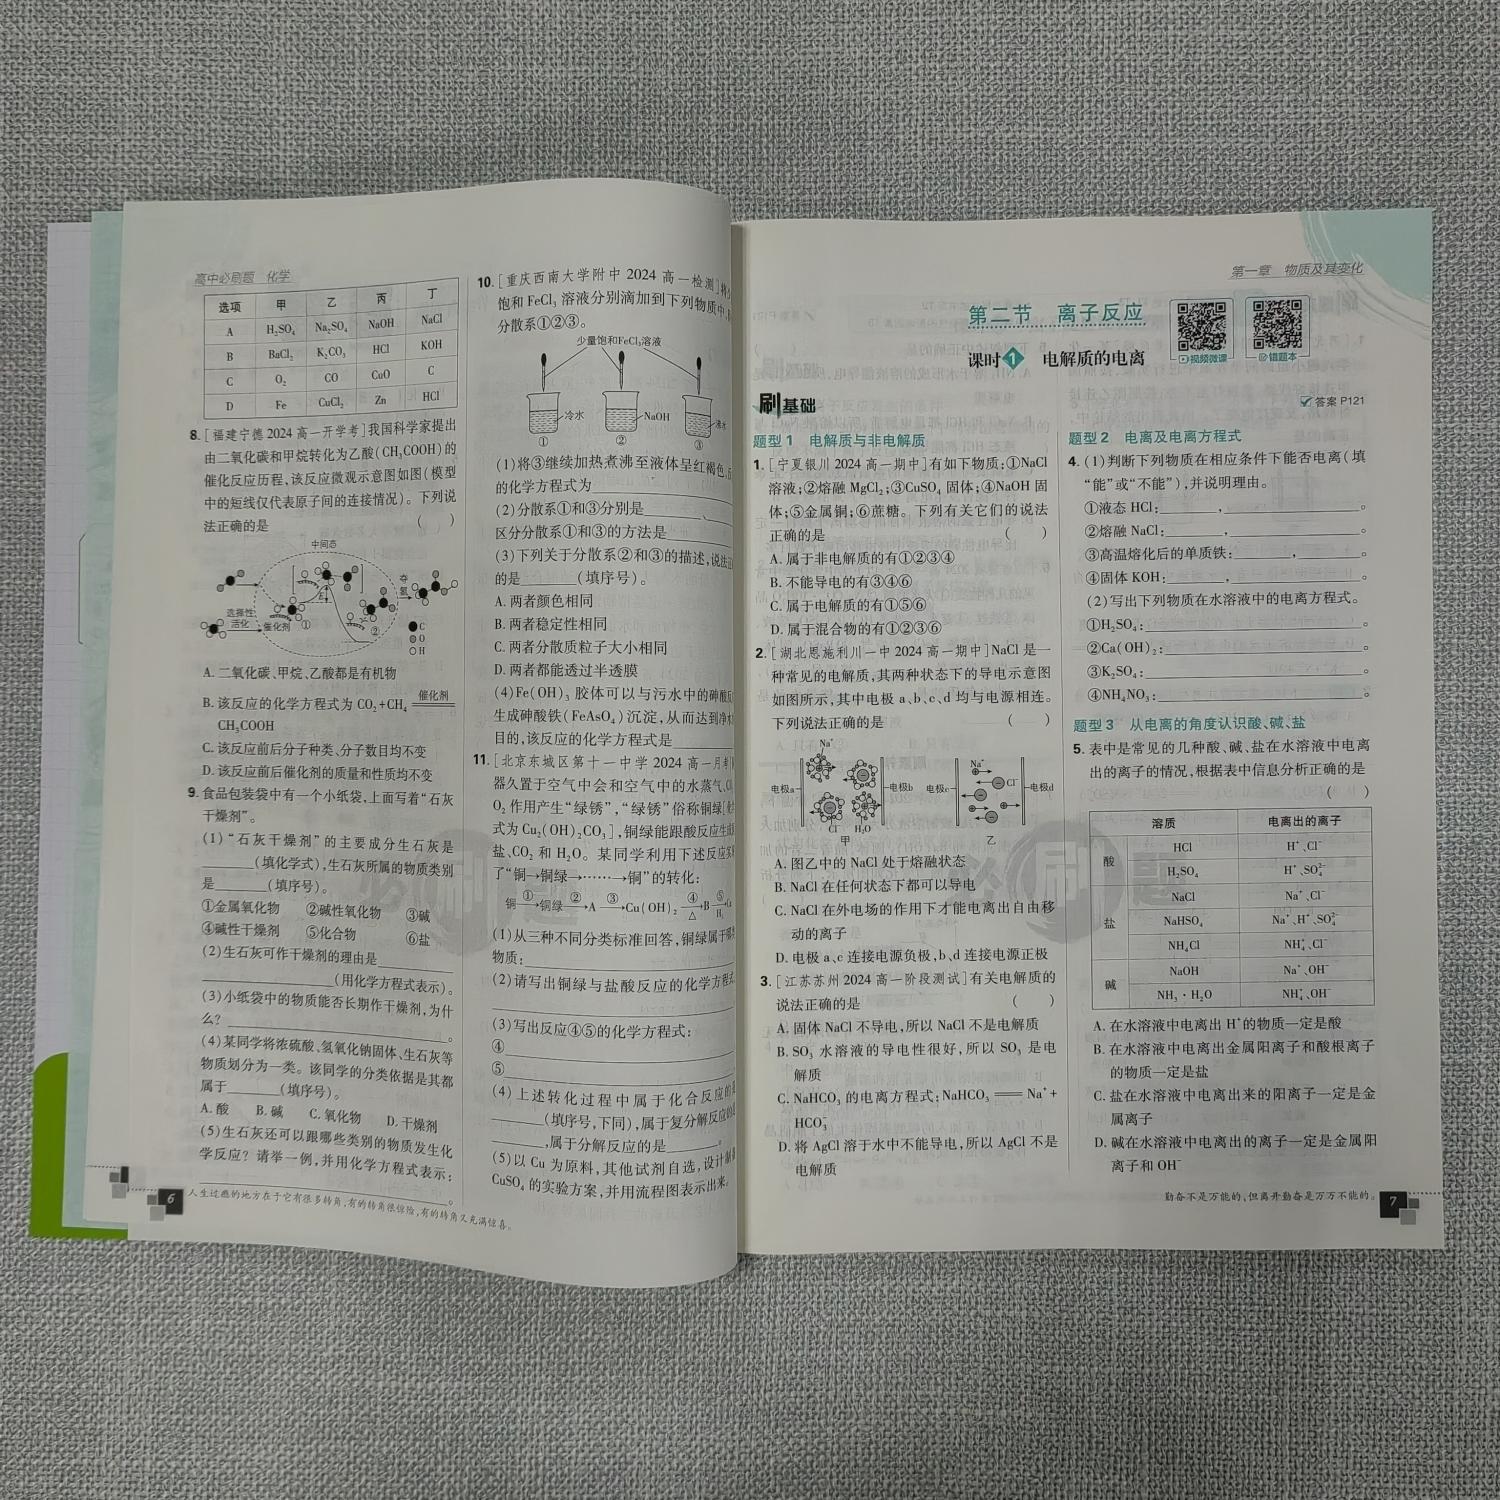 高中必刷题 化学
选项 甲 乙 丙 丁
A H₂SO₄ Na₂SO₄ NaOH NaCl
B BaCl₂ K₂CO₃ HCl KOH
C O₂ CO CuO C
D Fe CuCl₂ Zn HCl
8. [福建宁德 2024 高一开学考]我国科学家提出
由二氧化碳和甲烷转化为乙酸(CH₃COOH)的
催化反应历程,该反应微观示意图如图(模型
中的短线仅代表原子间的连接情况)。下列说
法正确的是 ( )
中间态
选择性
活化
催化剂
①
②
夺
氢
C
O
H
A. 二氧化碳、甲烷、乙酸都是有机物
B. 该反应的化学方程式为 CO₂+CH₄ 催化剂
CH₃COOH
C. 该反应前后分子种类、分子数目均不变
D. 该反应前后催化剂的质量和性质均不变
9. 食品包装袋中有一个小纸袋,上面写着“石灰
干燥剂”。
(1)“石灰干燥剂”的主要成分生石灰是
______(填化学式),生石灰所属的物质类别
是______(填序号)。
①金属氧化物 ②碱性氧化物 ③碱
④碱性干燥剂 ⑤化合物 ⑥盐
(2)生石灰可作干燥剂的理由是______
______(用化学方程式表示)。
(3)小纸袋中的物质能否长期作干燥剂,为什
么?______。
(4)某同学将浓硫酸、氢氧化钠固体、生石灰等
物质划分为一类。该同学的分类依据是其都
属于______(填序号)。
A. 酸 B. 碱 C. 氧化物 D. 干燥剂
(5)生石灰还可以跟哪些类别的物质发生化
学反应?请举一例,并用化学方程式表示:
______。
6 人生过瘾的地方在于它有很多转角,有的转角很惊险,有的转角又充满惊喜。
10. [重庆西南大学附中 2024 高一检测]将
饱和 FeCl₃ 溶液分别滴加到下列物质中,
分散系①②③。
少量饱和FeCl₃溶液
冷水 NaOH 沸水
① ② ③
(1)将③继续加热煮沸至液体呈红褐色,
的化学方程式为______
(2)分散系①和③分别是______、
区分分散系①和③的方法是______
(3)下列关于分散系②和③的描述,说法
的是______(填序号)。
A. 两者颜色相同
B. 两者稳定性相同
C. 两者分散质粒子大小相同
D. 两者都能透过半透膜
(4)Fe(OH)₃ 胶体可以与污水中的砷酸
生成砷酸铁(FeAsO₄)沉淀,从而达到净水
目的,该反应的化学方程式是______
11. [北京东城区第十一中学 2024 高一月考]
器久置于空气中会和空气中的水蒸气、
O₂ 作用产生“绿锈”,“绿锈”俗称铜绿[
式为 Cu₂(OH)₂CO₃],铜绿能跟酸反应生成
盐、CO₂ 和 H₂O。某同学利用下述反应
了“铜→铜绿→……→铜”的转化:
铜 ①→ 铜绿 ②→ A ③→ Cu(OH)₂ ④△→ B ⑤H₂→
(1)从三种不同分类标准回答,铜绿属于哪
物质:______
(2)请写出铜绿与盐酸反应的化学方程式
______
(3)写出反应④⑤的化学方程式:
④______
⑤______
(4)上述转化过程中属于化合反应的是
______(填序号,下同),属于复分解反应的
______,属于分解反应的是______。
(5)以 Cu 为原料,其他试剂自选,设计制
CuSO₄ 的实验方案,并用流程图表示出来。
第一章 物质及其变化
第二节 离子反应
课时1 电解质的电离
视频微课 错题本
刷基础
答案 P121
题型 1 电解质与非电解质
1. [宁夏银川 2024 高一期中]有如下物质:①NaCl
溶液;②熔融 MgCl₂;③CuSO₄ 固体;④NaOH 固
体;⑤金属铜;⑥蔗糖。下列有关它们的说法
正确的是 ( )
A. 属于非电解质的有①②③④
B. 不能导电的有③④⑥
C. 属于电解质的有①⑤⑥
D. 属于混合物的有①②③⑥
2. [湖北恩施利川一中 2024 高一期中]NaCl 是一
种常见的电解质,其两种状态下的导电示意图
如图所示,其中电极 a、b、c、d 均与电源相连。
下列说法正确的是 ( )
Na⁺ Na⁺
电极a 电极b 电极c Cl⁻ 电极d
Cl⁻ H₂O
甲 乙
A. 图乙中的 NaCl 处于熔融状态
B. NaCl 在任何状态下都可以导电
C. NaCl 在外电场的作用下才能电离出自由移
动的离子
D. 电极 a、c 连接电源负极,b、d 连接电源正极
3. [江苏苏州 2024 高一阶段测试]有关电解质的
说法正确的是 ( )
A. 固体 NaCl 不导电,所以 NaCl 不是电解质
B. SO₃ 水溶液的导电性很好,所以 SO₃ 是电
解质
C. NaHCO₃ 的电离方程式:NaHCO₃ ══ Na⁺+
HCO₃⁻
D. 将 AgCl 溶于水中不能导电,所以 AgCl 不是
电解质
题型 2 电离及电离方程式
4. (1)判断下列物质在相应条件下能否电离(填
“能”或“不能”),并说明理由。
①液态 HCl:______,______。
②熔融 NaCl:______,______。
③高温熔化后的单质铁:______,______。
④固体 KOH:______,______。
(2)写出下列物质在水溶液中的电离方程式。
①H₂SO₄:______。
②Ca(OH)₂:______。
③K₂SO₄:______。
④NH₄NO₃:______。
题型 3 从电离的角度认识酸、碱、盐
5. 表中是常见的几种酸、碱、盐在水溶液中电离
出的离子的情况,根据表中信息分析正确的是
( )
溶质 电离出的离子
酸 HCl H⁺、Cl⁻
H₂SO₄ H⁺、SO₄²⁻
盐 NaCl Na⁺、Cl⁻
NaHSO₄ Na⁺、H⁺、SO₄²⁻
NH₄Cl NH₄⁺、Cl⁻
碱 NaOH Na⁺、OH⁻
NH₃·H₂O NH₄⁺、OH⁻
A. 在水溶液中电离出 H⁺的物质一定是酸
B. 在水溶液中电离出金属阳离子和酸根离子
的物质一定是盐
C. 盐在水溶液中电离出来的阳离子一定是金
属离子
D. 碱在水溶液中电离出的离子一定是金属阳
离子和 OH⁻
勤奋不是万能的,但离开勤奋是万万不能的。 7